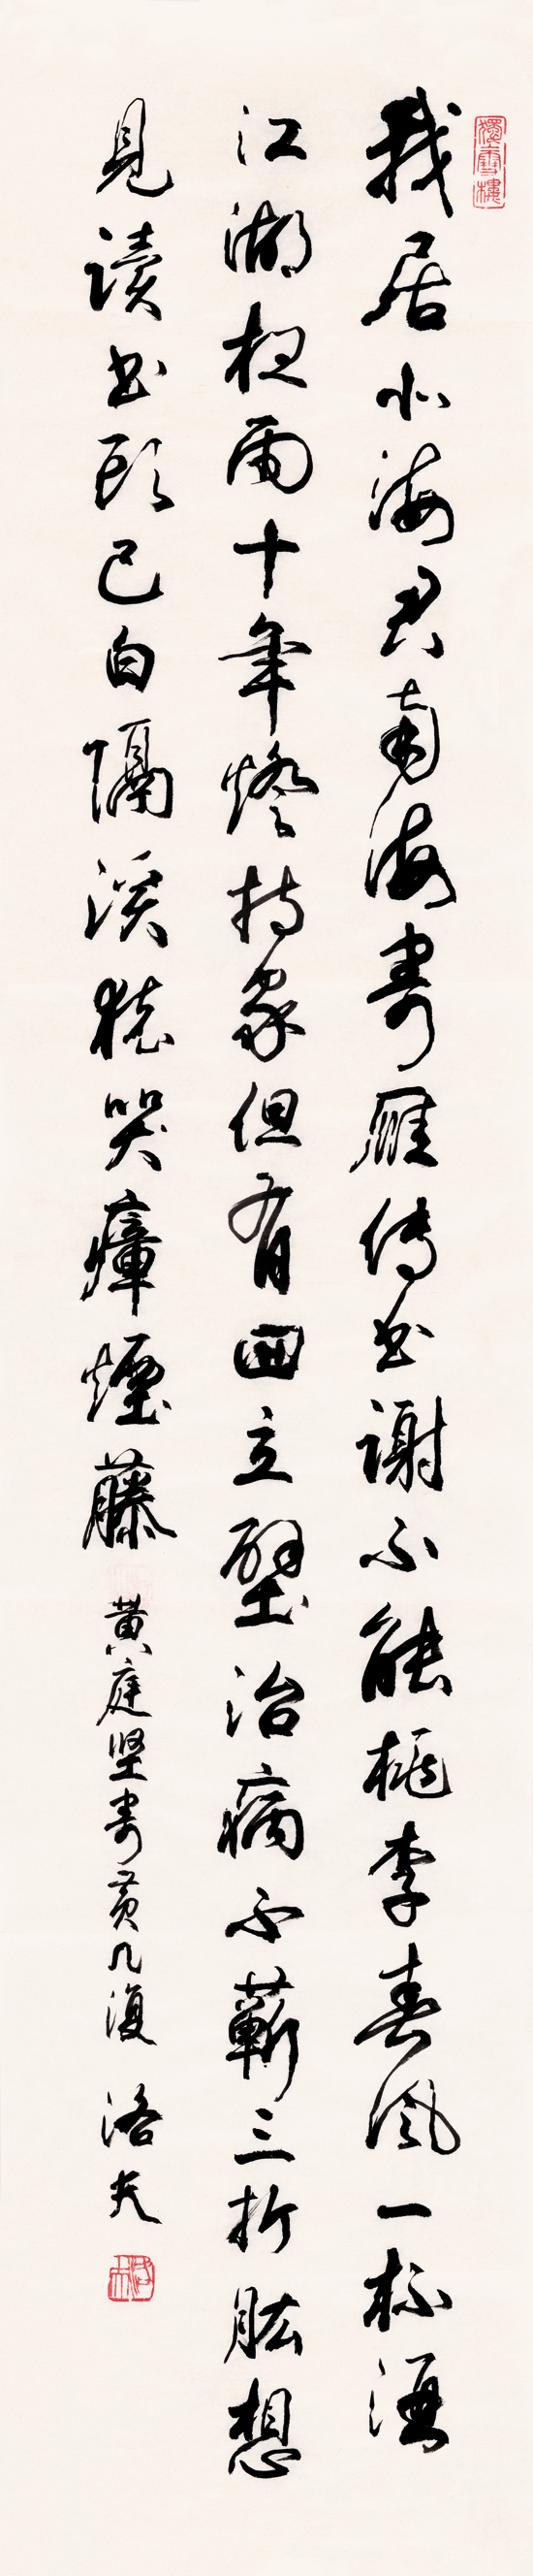 獨雪樓
我居北海君南海寄雁傳書謝不能桃李春風一杯酒
江湖夜雨十年燈持家但有四立壁治病不蘄三折肱想
見讀書頭已白隔溪猿哭瘴煙藤 黄庭堅寄黄几復 洛夫
洛夫